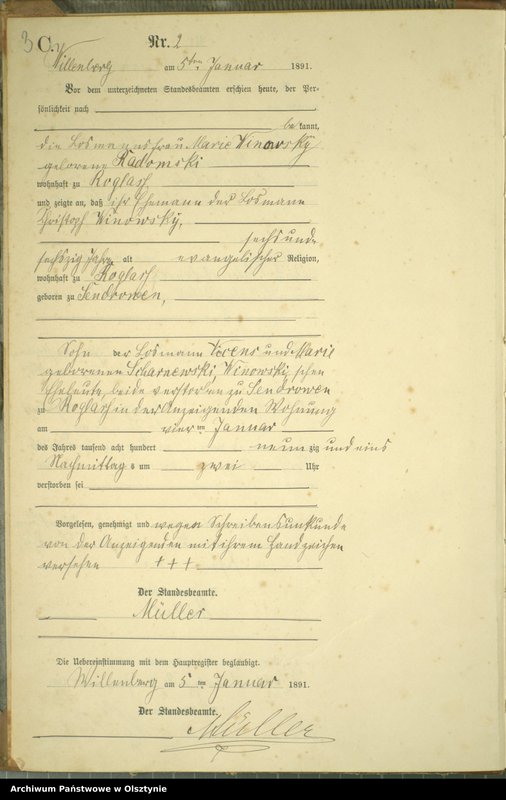 3 C.
Nr. 2
Willenberg am 5ten Januar 1891.
Vor dem unterzeichneten Standesbeamten erschien heute, der Per-
sönlichkeit nach
be kannt,
die Losmannsfrau Marie Winowsky
geborene Radomski
wohnhaft zu Roglass
und zeigte an, daß ihr Ehemann der Losmann
Christoph Winowsky,
sechs und
sechszig Jahre alt evangelischer Religion,
wohnhaft zu Roglass
geboren zu Sendrowen,
Sohn der Losmann und Marie
geborenen Scharnewski, Winowski schen
Eheleute, beide verstorben zu Sendrowen
zu Roglass in der Anzeigenden Wohnung
am vier ten Januar
des Jahres tausend acht hundert neun zig und eins
Nachmittag s um zwei Uhr
verstorben sei
Vorgelesen, genehmigt und wegen Schreibensunkunde
von der Anzeigenden mit ihrem Handzeichen
versehen +++
Der Standesbeamte.
Müller
Die Uebereinstimmung mit dem Hauptregister beglaubigt.
Willenberg am 5 ten Januar 1891.
Der Standesbeamte.
Müller
Archiwum Państwowe w Olsztynie